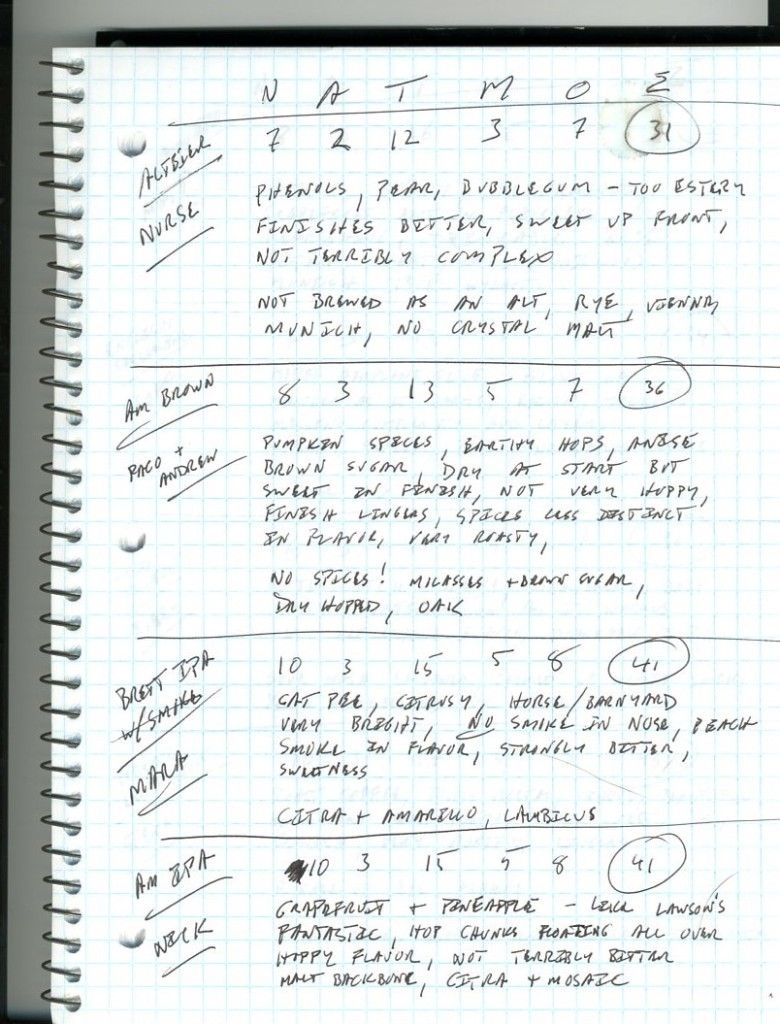 N A T M O Σ
ALTBIER 7 2 12 3 7 31
NURSE
PHENOLS, PEAR, BUBBLEGUM - TOO ESTERY
FINISHES BITTER, SWEET UP FRONT,
NOT TERRIBLY COMPLEX
NOT BREWED AS AN ALT, RYE, VIENNA,
MUNICH, NO CRYSTAL MALT
AM BROWN 8 3 13 5 7 36
PACO +
ANDREW
PUMPKIN SPICES, EARTHY HOPS, ANISE
BROWN SUGAR, DRY AT START BUT
SWEET IN FINISH, NOT VERY HOPPY,
FINISH LINGERS, SPICES LESS DISTINCT
IN FLAVOR, VERY ROASTY,
NO SPICES! MOLASSES + BROWN SUGAR,
DRY HOPPED, OAK
BRETT IPA 10 3 15 5 8 41
W/SMOKE
MARA
CAT PEE, CITRUSY, HORSE/BARNYARD
VERY BRIGHT, NO SMOKE IN NOSE, PEACH
SMOKE IN FLAVOR, STRONGLY BITTER,
SWEETNESS
CITRA + AMARILLO, LAMBICUS
AM IPA 10 3 15 5 8 41
NICK
GRAPEFRUIT + PINEAPPLE - LIKE LAWSON'S
FANTASTIC, HOP CHUNKS FLOATING ALL OVER
HOPPY FLAVOR, NOT TERRIBLY BITTER
MALT BACKBONE, CITRA + MOSAIC